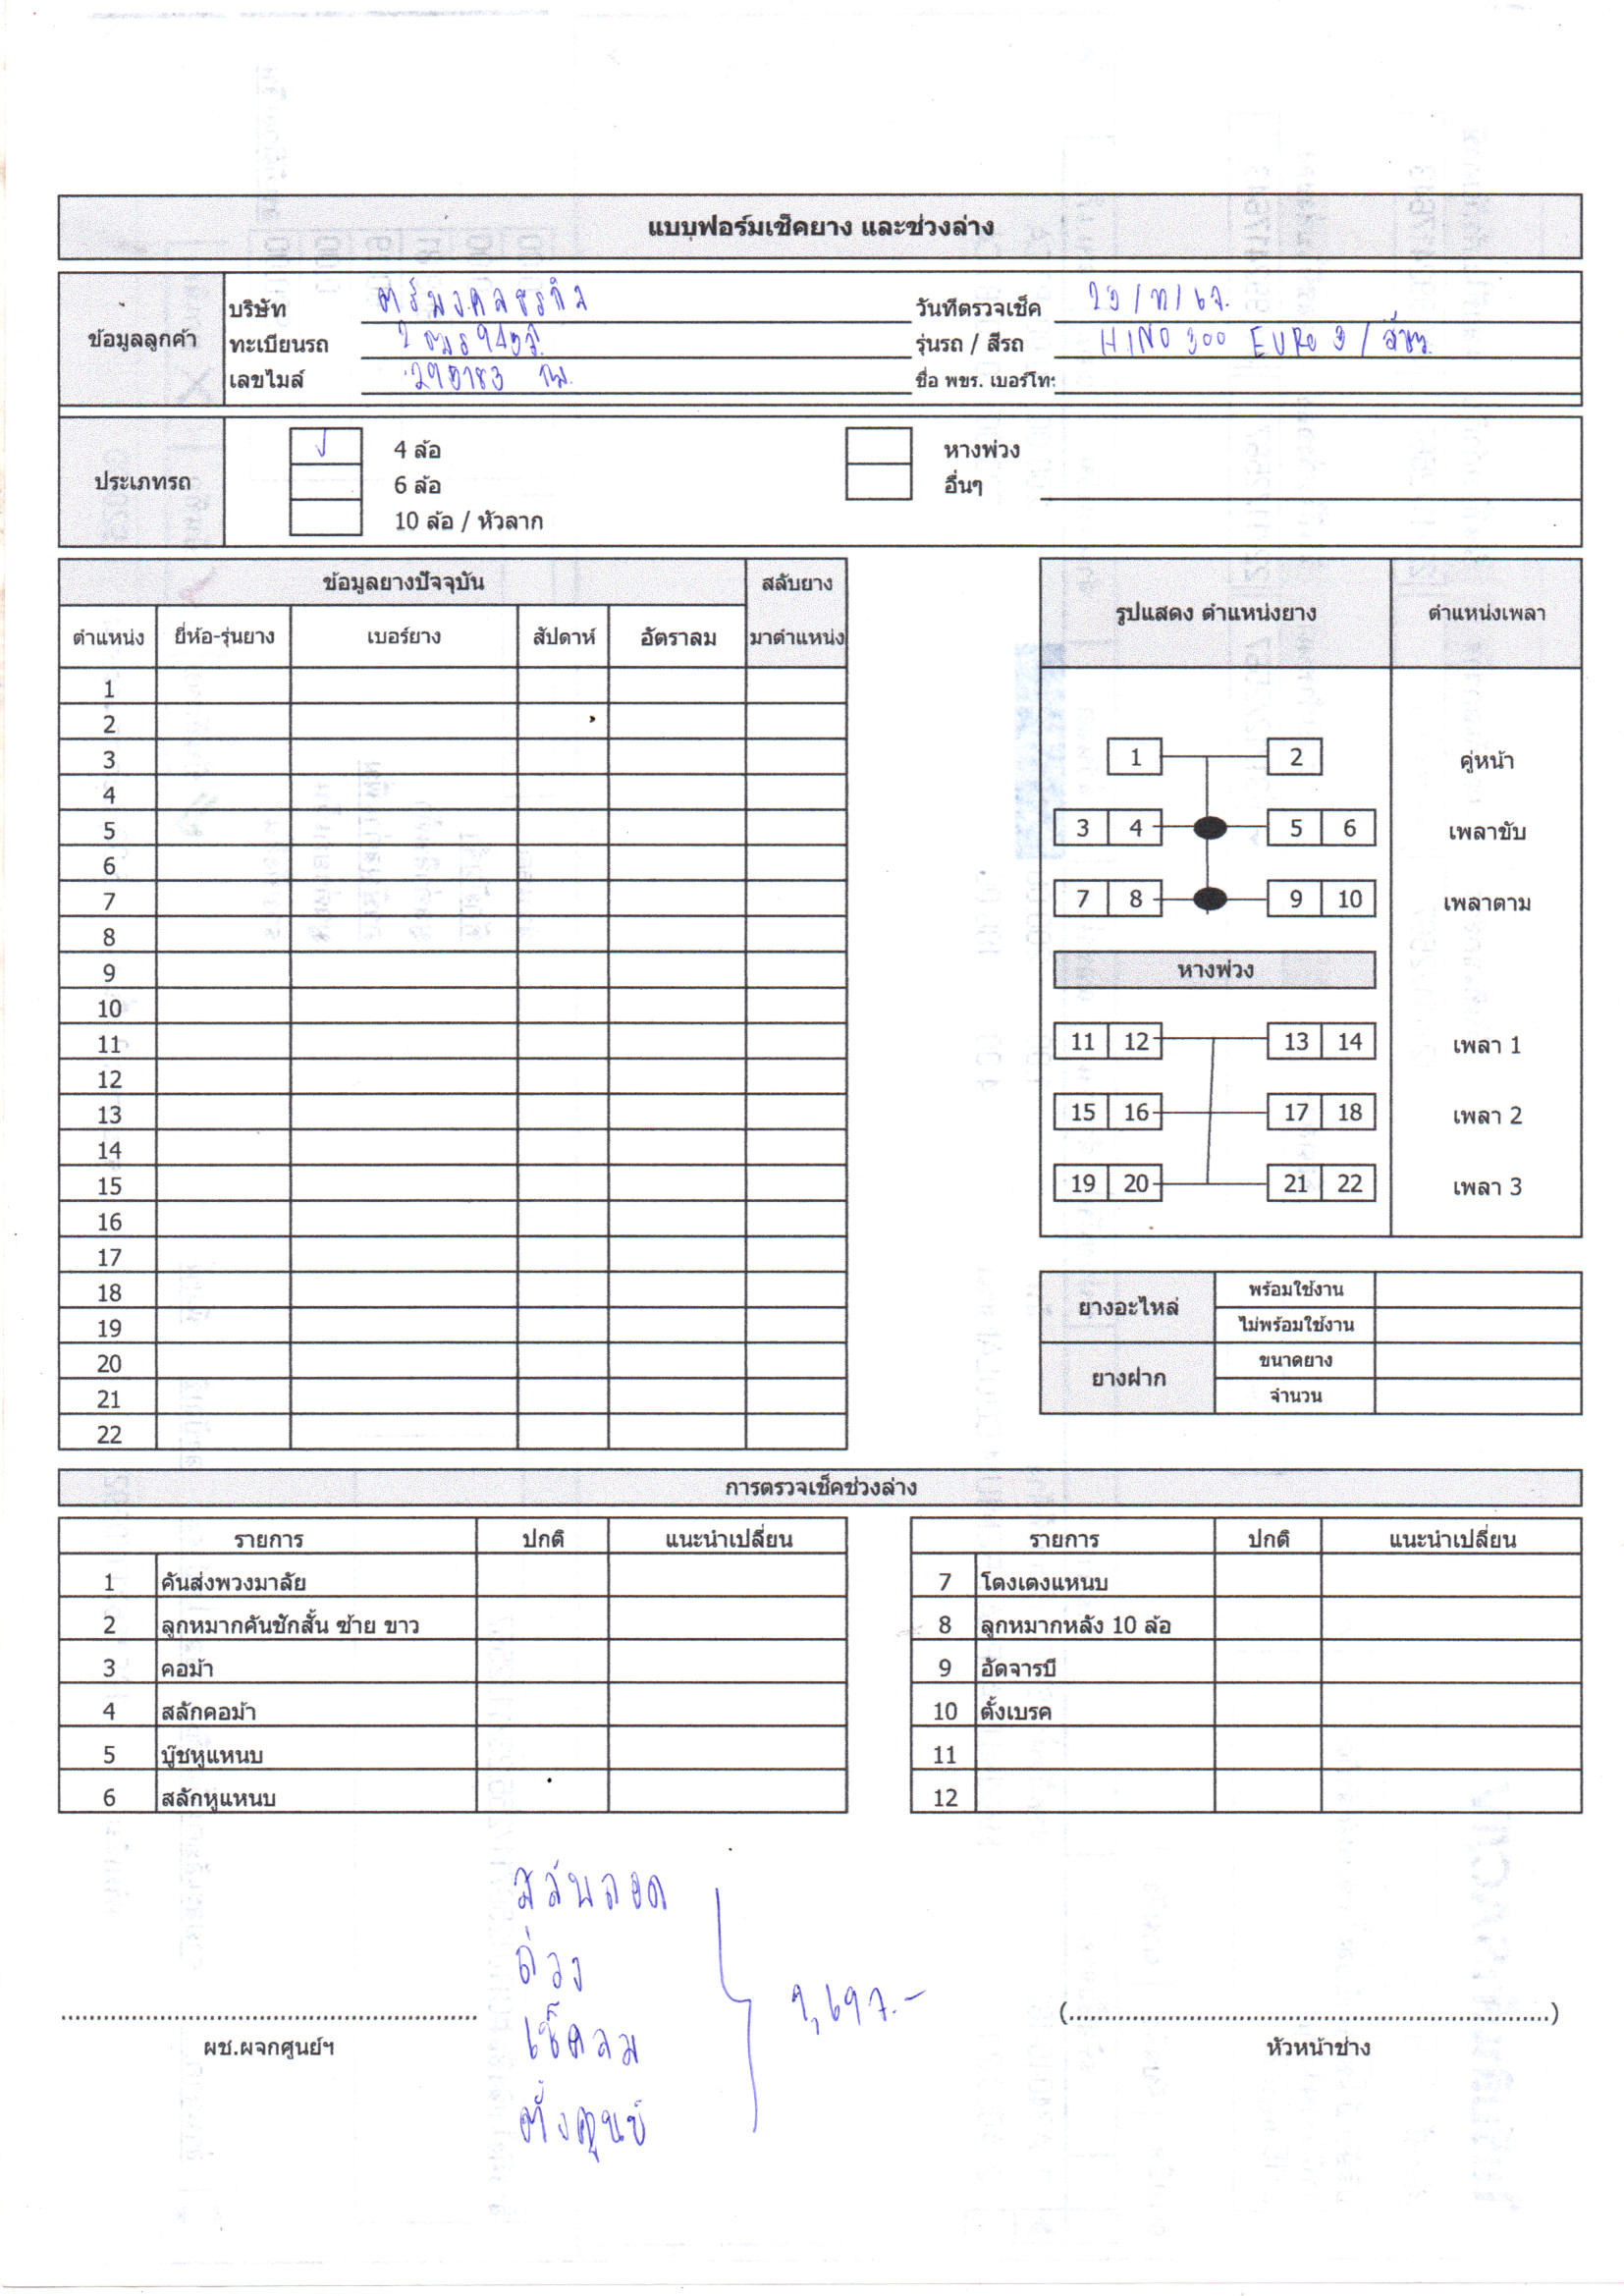 แบบฟอร์มเช็คยาง และช่วงล่าง
ข้อมูลลูกค้า
บริษัท ตรีมงคลธุรกิจ
วันที่ตรวจเช็ค
ทะเบียนรถ
รุ่นรถ / สีรถ HINO 300 EURO 3 /
เลขไมล์ กม.
ชื่อ พขร. เบอร์โทร
ประเภทรถ
4 ล้อ
หางพ่วง
6 ล้อ
อื่นๆ
10 ล้อ / หัวลาก
ข้อมูลยางปัจจุบัน สลับยาง
ตำแหน่ง ยี่ห้อ-รุ่นยาง เบอร์ยาง สัปดาห์ อัตราลม มาตำแหน่ง
1
2
3
4
5
6
7
8
9
10
11
12
13
14
15
16
17
18
19
20
21
22
รูปแสดง ตำแหน่งยาง ตำแหน่งเพลา
1 2 คู่หน้า
3 4 5 6 เพลาขับ
7 8 9 10 เพลาตาม
หางพ่วง
11 12 13 14 เพลา 1
15 16 17 18 เพลา 2
19 20 21 22 เพลา 3
ยางอะไหล่
พร้อมใช้งาน
ไม่พร้อมใช้งาน
ยางฝาก
ขนาดยาง
จำนวน
การตรวจเช็คช่วงล่าง
รายการ ปกติ แนะนำเปลี่ยน
1 คันส่งพวงมาลัย
2 ลูกหมากคันชักสั้น ซ้าย ขาว
3 คอม้า
4 สลักคอม้า
5 บู๊ชหูแหนบ
6 สลักหูแหนบ
รายการ ปกติ แนะนำเปลี่ยน
7 โตงเตงแหนบ
8 ลูกหมากหลัง 10 ล้อ
9 อัดจารบี
10 ตั้งเบรค
11
12
สลับถอด
ถ่วง
เช็คลม
ตั้งศูนย์
ผช.ผจกศูนย์ฯ
(........................................................................)
หัวหน้าช่าง